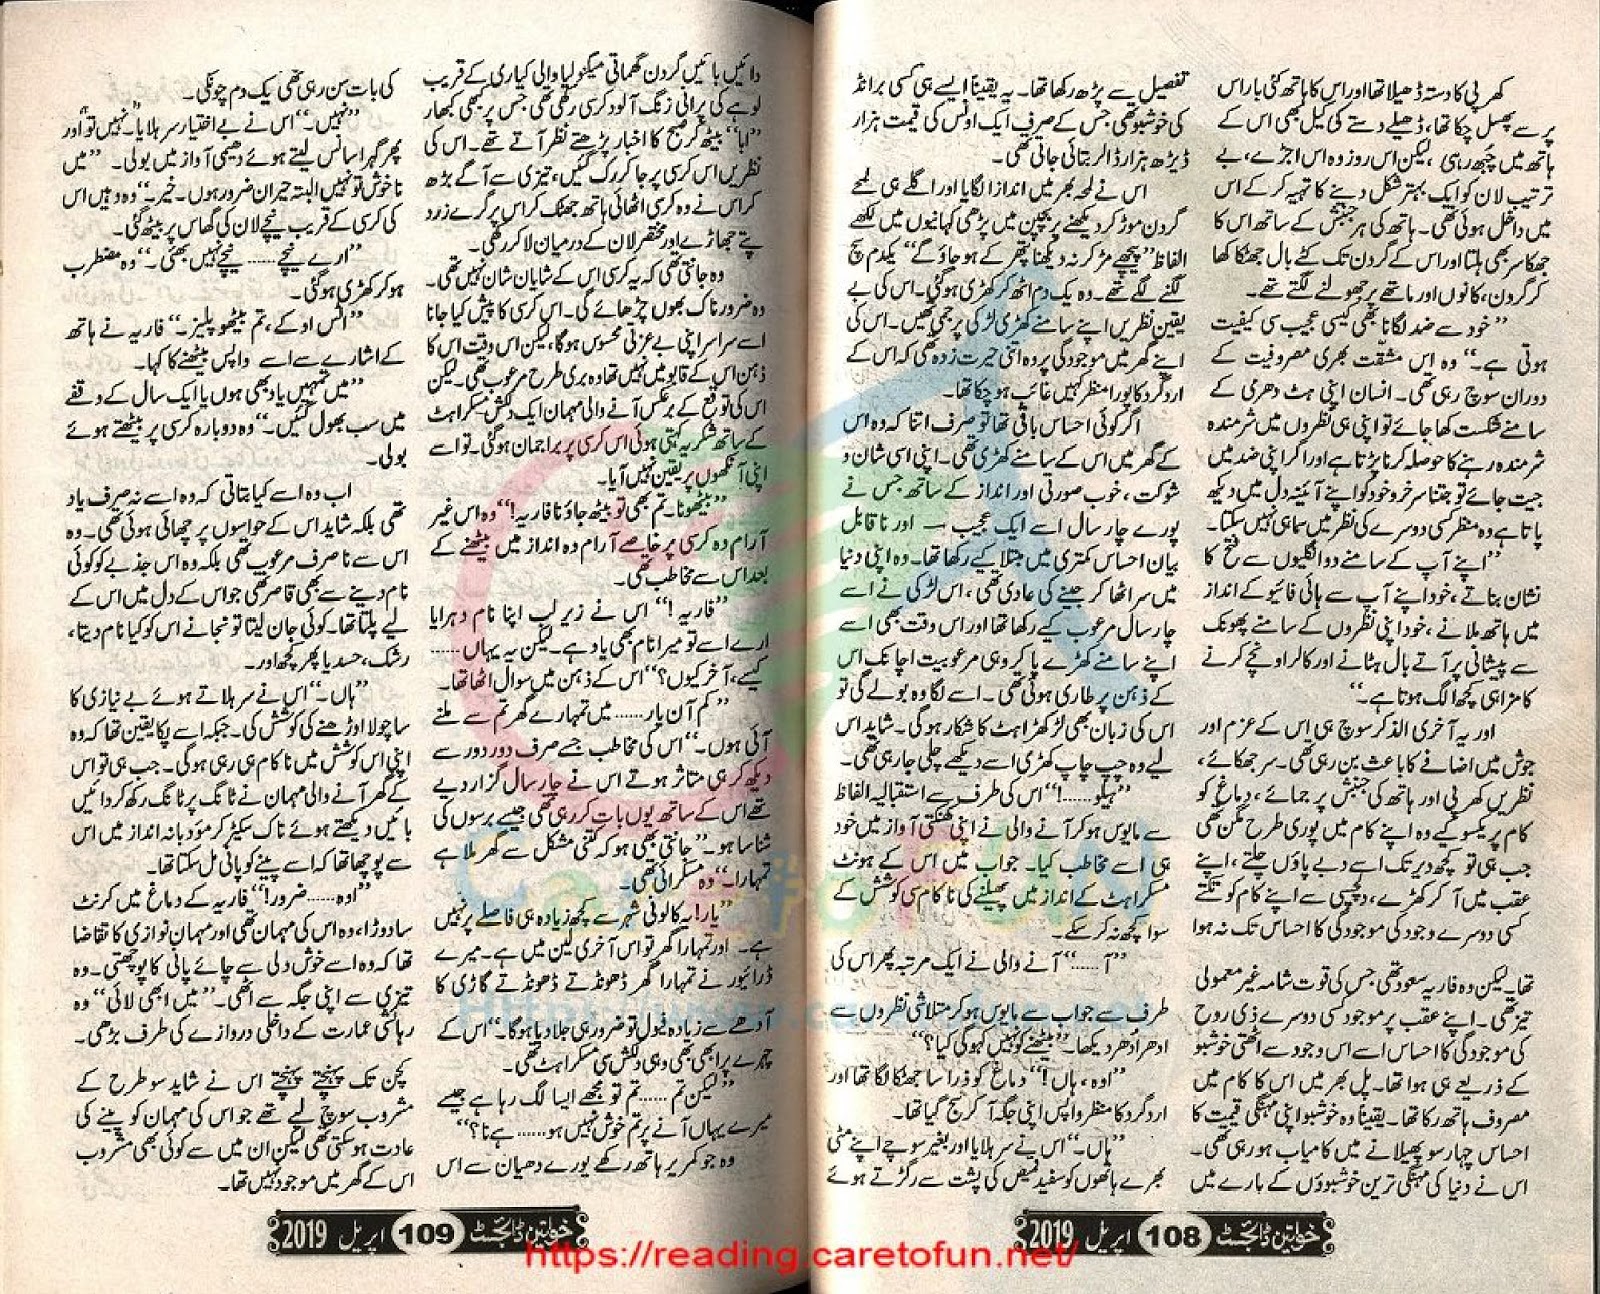 کھرپی کا دستہ ڈھیلا تھا اور اس کا ہاتھ کئی بار اس
پر سے پھسل چکا تھا، ڈھیلے دستے کی کیل بھی اس کے
ہاتھ میں چبھ رہی تھی، لیکن اس روز وہ اس اجڑے، بے
ترتیب لان کو ایک بہتر شکل دینے کا تہیہ کر کے اس
میں داخل ہوئی تھی۔ ہاتھ کی ہر جنبش کے ساتھ اس کا
جھکا سر بھی ہلتا اور اس کے گردن تک کٹے بال جھٹکا کھا
کر گردن، کانوں اور ماتھے پر جھولنے لگتے تھے۔
”خود سے ضد لگانا بھی کیسی عجیب سی کیفیت
ہوتی ہے۔“ وہ اس مشقت بھری مصروفیت کے
دوران سوچ رہی تھی۔ انسان اپنی ہٹ دھرمی کے
سامنے شکست کھا جائے تو اپنی ہی نظروں میں شرمندہ
شرمندہ رہنے کا حوصلہ کرنا پڑتا ہے اور اگر اپنی ضد میں
جیت جائے تو جتنا سرخرو خود کو اپنے آئینہ دل میں دیکھ
پاتا ہے وہ منظر کسی دوسرے کی نظر میں سما ہی نہیں سکتا۔
”اپنے آپ کے سامنے دو انگلیوں سے فتح کا
نشان بناتے، خود اپنے آپ سے ہائی فائیو کے انداز
میں ہاتھ ملانے، خود اپنی نظروں کے سامنے پھونک
سے پیشانی پر آتے بال ہٹانے اور کالر اونچے کرنے
کا مزا ہی کچھ الگ ہوتا ہے۔“
اور یہ آخری الذکر سوچ ہی اس کے عزم اور
جوش میں اضافے کا باعث بن رہی تھی۔ سر جھکائے،
نظریں کھرپی اور ہاتھ کی جنبش پر جمائے، دماغ کو
کام پر یکسو کیے وہ اپنے کام میں پوری طرح مگن تھی
جب ہی تو کچھ دیر تک اسے دبے پاؤں چلتے، اپنے
عقب میں آ کر کھڑے، دلچسپی سے اپنے کام کو تکتے
کسی دوسرے وجود کی موجودگی کا احساس تک نہ ہوا
تھا۔ لیکن وہ فاریہ سعود تھی جس کی قوت شامہ غیر معمولی
تیز تھی۔ اپنے عقب پر موجود کسی دوسرے ذی روح
کی موجودگی کا احساس اسے اس وجود سے اٹھتی خوشبو
کے ذریعے ہی ہوا تھا۔ پل بھر میں اس کا کام میں
مصروف ہاتھ رکا تھا۔ یقیناً وہ خوشبو اپنی مہنگی قیمت کا
احساس چہار سو پھیلانے میں کامیاب ہو رہی تھی۔
اس نے دنیا کی مہنگی ترین خوشبوؤں کے بارے میں
تفصیل سے پڑھ رکھا تھا۔ یہ یقیناً ایسے ہی کسی برانڈ
کی خوشبو تھی جس کے صرف ایک اونس کی قیمت ہزار
ڈیڑھ ہزار ڈالر بتائی جاتی تھی۔
اس نے لمحہ بھر میں اندازا لگایا اور اگلے ہی لمحے
گردن موڑ کر دیکھنے پر بچپن میں پڑھی کہانیوں میں لکھے
الفاظ ”پیچھے مڑ کر نہ دیکھنا پتھر کے ہو جاؤ گے“ یکدم سچ
لگنے لگے تھے۔ وہ یک دم اٹھ کر کھڑی ہو گئی۔ اس کی بے
یقین نظریں اپنے سامنے کھڑی لڑکی پر جمی تھیں۔ اس کی
اپنے گھر میں موجودگی پر وہ اتنی حیرت زدہ تھی کہ اس کے
ارد گرد کا پورا منظر کہیں غائب ہو چکا تھا۔
اگر کوئی احساس باقی تھا تو صرف اتنا کہ وہ اس
کے گھر میں اس کے سامنے کھڑی تھی۔ اپنی اسی شان و
شوکت، خوب صورتی اور انداز کے ساتھ جس نے
پورے چار سال اسے ایک عجیب — اور ناقابل
بیان احساس کمتری میں مبتلا کیے رکھا تھا۔ وہ اپنی دنیا
میں سر اٹھا کر جینے کی عادی تھی، اس لڑکی نے اسے
چار سال مرعوب کیے رکھا تھا اور اس وقت بھی اسے
اپنے سامنے کھڑے پا کر وہی مرعوبیت اچانک اس
کے ذہن پر طاری ہوئی تھی۔ اسے لگا وہ بولے گی تو
اس کی زبان بھی لڑکھڑاہٹ کا شکار ہو گی۔ شاید اس
لیے وہ چپ چاپ کھڑی اسے دیکھے چلی جا رہی تھی۔
”ہیلو......!“ اس کی طرف سے استقبالیہ الفاظ
سے مایوس ہو کر آنے والی نے اپنی کھنکتی آواز میں خود
ہی اسے مخاطب کیا۔ جواب میں اس کے ہونٹ
مسکراہٹ کے انداز میں پھیلنے کی ناکام سی کوشش کے
سوا کچھ نہ کر سکے۔
”آ......“ آنے والی نے ایک مرتبہ پھر اس کی
طرف سے جواب سے مایوس ہو کر متلاشی نظروں سے
ادھر ادھر دیکھا۔ ”بیٹھنے کو نہیں کہو گی کیا؟“
”اوہ، ہاں!“ دماغ کو ذرا سا جھٹکا لگا تھا اور
ارد گرد کا منظر واپس اپنی جگہ آ کر جم گیا تھا۔
”ہاں۔“ اس نے سر ہلایا اور بغیر سوچے اپنے مٹی
بھرے ہاتھوں کو سفید قمیص کی پشت سے رگڑتے ہوئے
خواتین ڈائجسٹ 108 اپریل 2019
دائیں بائیں گردن گھماتی میگنولیا والی کیاری کے قریب
لوہے کی پرانی زنگ آلود کرسی رکھی تھی جس پر کبھی کبھار
”ابا“ بیٹھ کر صبح کا اخبار پڑھتے نظر آتے تھے۔ اس کی
نظریں اس کرسی پر جا کر رک گئیں، تیزی سے آگے بڑھ
کر اس نے وہ کرسی اٹھائی ہاتھ جھٹک کر اس پر گرے زرد
پتے جھاڑے اور مختصر لان کے درمیان لا کر رکھی۔
وہ جانتی تھی کہ یہ کرسی اس کے شایان شان نہیں تھی۔
وہ ضرور ناک بھوں چڑھائے گی۔ اس کرسی کا پیش کیا جانا
اسے سراسر اپنی بے عزتی محسوس ہو گا، لیکن اس وقت اس کا
ذہن اس کے قابو میں نہیں تھا وہ بری طرح مرعوب تھی۔ لیکن
اس کی توقع کے برعکس آنے والی مہمان ایک دلکش مسکراہٹ
کے ساتھ شکریہ کہتی ہوئی اس کرسی پر براجمان ہو گئی۔ تو اسے
اپنی آنکھوں پر یقین نہیں آیا۔
”بیٹھو نا۔ تم بھی تو بیٹھ جاؤ نا فاریہ!“ وہ اس غیر
آرام دہ کرسی پر خاصے آرام دہ انداز میں بیٹھنے کے
بعد اس سے مخاطب تھی۔
”فاریہ!“ اس نے زیر لب اپنا نام دہرایا
ارے اسے تو میرا نام بھی یاد ہے۔ لیکن یہ یہاں ......
کیسے، آخر کیوں؟“ اس کے ذہن میں سوال اٹھا تھا۔
”کم آن یار...... میں تمہارے گھر تم سے ملنے
آئی ہوں۔“ اس کی مخاطب جسے صرف دور دور سے
دیکھ کر ہی متاثر ہوتے اس نے چار سال گزار دیے
تھے اس کے ساتھ یوں بات کر رہی تھی جیسے برسوں کی
شناسا ہو۔ ”جانتی بھی ہو کہ کتنی مشکل سے گھر ملا ہے
تمہارا۔“ وہ مسکرائی تھی۔
”یار! یہ کالونی شہر سے کچھ زیادہ ہی فاصلے پر نہیں
ہے۔ اور تمہارا گھر تو اس آخری لین میں ہے۔ میرے
ڈرائیور نے تمہارا گھر ڈھونڈتے ڈھونڈتے گاڑی کا
آدھے سے زیادہ فیول تو ضرور ہی جلا دیا ہو گا۔“ اس کے
چہرے پر ابھی بھی وہی دلکش سی مسکراہٹ تھی۔
”لیکن تم...... تم تو مجھے ایسا لگ رہا ہے جیسے
میرے یہاں آنے پر تم خوش نہیں ہو...... ہے نا؟“
وہ جو کمر پر ہاتھ رکھے پورے دھیان سے اس
کی بات سن رہی تھی یک دم چونکی۔
”نہیں۔“ اس نے بے اختیار سر ہلایا۔ ”نہیں تو“ اور
پھر گہرا سانس لیتے ہوئے دھیمی آواز میں بولی۔ ”میں
ناخوش تو نہیں البتہ حیران ضرور ہوں۔ خیر۔“ وہ وہیں اس
کی کرسی کے قریب نیچے لان کی گھاس پر بیٹھ گئی۔
”ارے نیچے...... نیچے نہیں بھئی۔“ وہ مضطرب
ہو کر کھڑی ہو گئی۔
”اٹس اوکے، تم بیٹھو پلیز۔“ فاریہ نے ہاتھ
کے اشارے سے اسے واپس بیٹھنے کا کہا۔
”میں تمہیں یاد بھی ہوں یا ایک سال کے وقفے
میں سب بھول گئیں۔“ وہ دوبارہ کرسی پر بیٹھتے ہوئے
بولی۔
اب وہ اسے کیا بتاتی کہ وہ اسے نہ صرف یاد
تھی بلکہ شاید اس کے حواسوں پر چھائی ہوئی تھی۔ وہ
اس سے نا صرف مرعوب تھی بلکہ وہ اس جذبے کو کوئی
نام دینے سے بھی قاصر تھی جو اس کے دل میں اس کے
لیے پلتا تھا۔ کوئی جان لیتا تو نجانے اس کو کیا نام دیتا،
رشک، حسد یا پھر کچھ اور۔
”ہاں۔“ اس نے سر ہلاتے ہوئے بے نیازی کا
سا چولا اوڑھنے کی کوشش کی۔ جبکہ اسے پکا یقین تھا کہ وہ
اپنی اس کوشش میں ناکام ہی رہی ہو گی۔ جب ہی تو اس
کے گھر آنے والی مہمان نے ٹانگ پر ٹانگ رکھ کر دائیں
بائیں دیکھتے ہوئے ناک سکیڑ کر مؤدبانہ انداز میں اس
سے پوچھا تھا کہ اسے پینے کو پانی مل سکتا تھا۔
”اوہ...... ضرور!“ فاریہ کے دماغ میں کرنٹ
سا دوڑا، وہ اس کی مہمان تھی اور مہمان نوازی کا تقاضا
تھا کہ وہ اسے خوش دلی سے چائے پانی کا پوچھتی۔ وہ
تیزی سے اپنی جگہ سے اٹھی۔ ”میں ابھی لائی“ وہ
رہائشی عمارت کے داخلی دروازے کی طرف بڑھی۔
کچن تک پہنچتے پہنچتے اس نے شاید سو طرح کے
مشروب سوچ لیے تھے جو اس کی مہمان کو پینے کی
عادت ہو سکتی تھی لیکن ان میں سے کوئی بھی مشروب
اس کے گھر میں موجود نہیں تھا۔
خواتین ڈائجسٹ 109 اپریل 2019
CaretoFUN
https://www.caretofun.net
https://reading.caretofun.net/